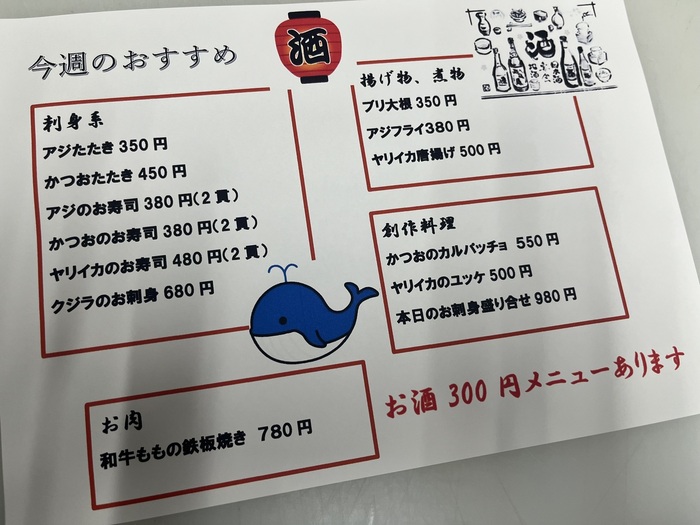 今週のおすすめ
酒
刺身系
アジたたき 350 円
かつおたたき 450 円
アジのお寿司 380 円(2 貫)
かつおのお寿司 380 円(2 貫)
ヤリイカのお寿司 480 円(2 貫)
クジラのお刺身 680 円
揚げ物、煮物
ブリ大根 350 円
アジフライ380 円
ヤリイカ唐揚げ 500 円
酒
創作料理
かつおのカルパッチョ 550 円
ヤリイカのユッケ 500 円
本日のお刺身盛り合せ 980 円
お肉
和牛ももの鉄板焼き 780 円
お酒 300 円メニューあります